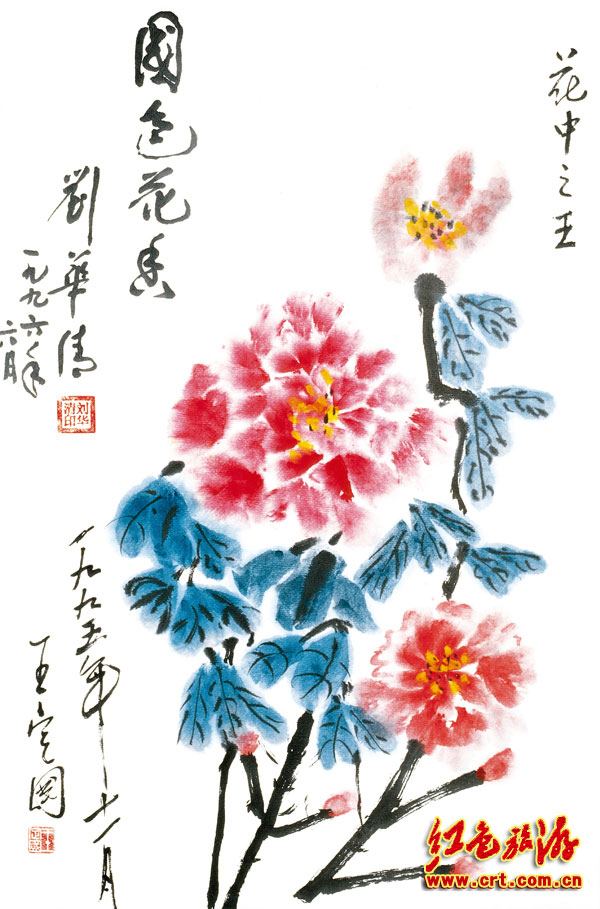 花中之王
國色花香
劉華清
一九九六年
六月
刘华清印
一九九五年十一月
王定國
红色旅游
www.crt.com.cn